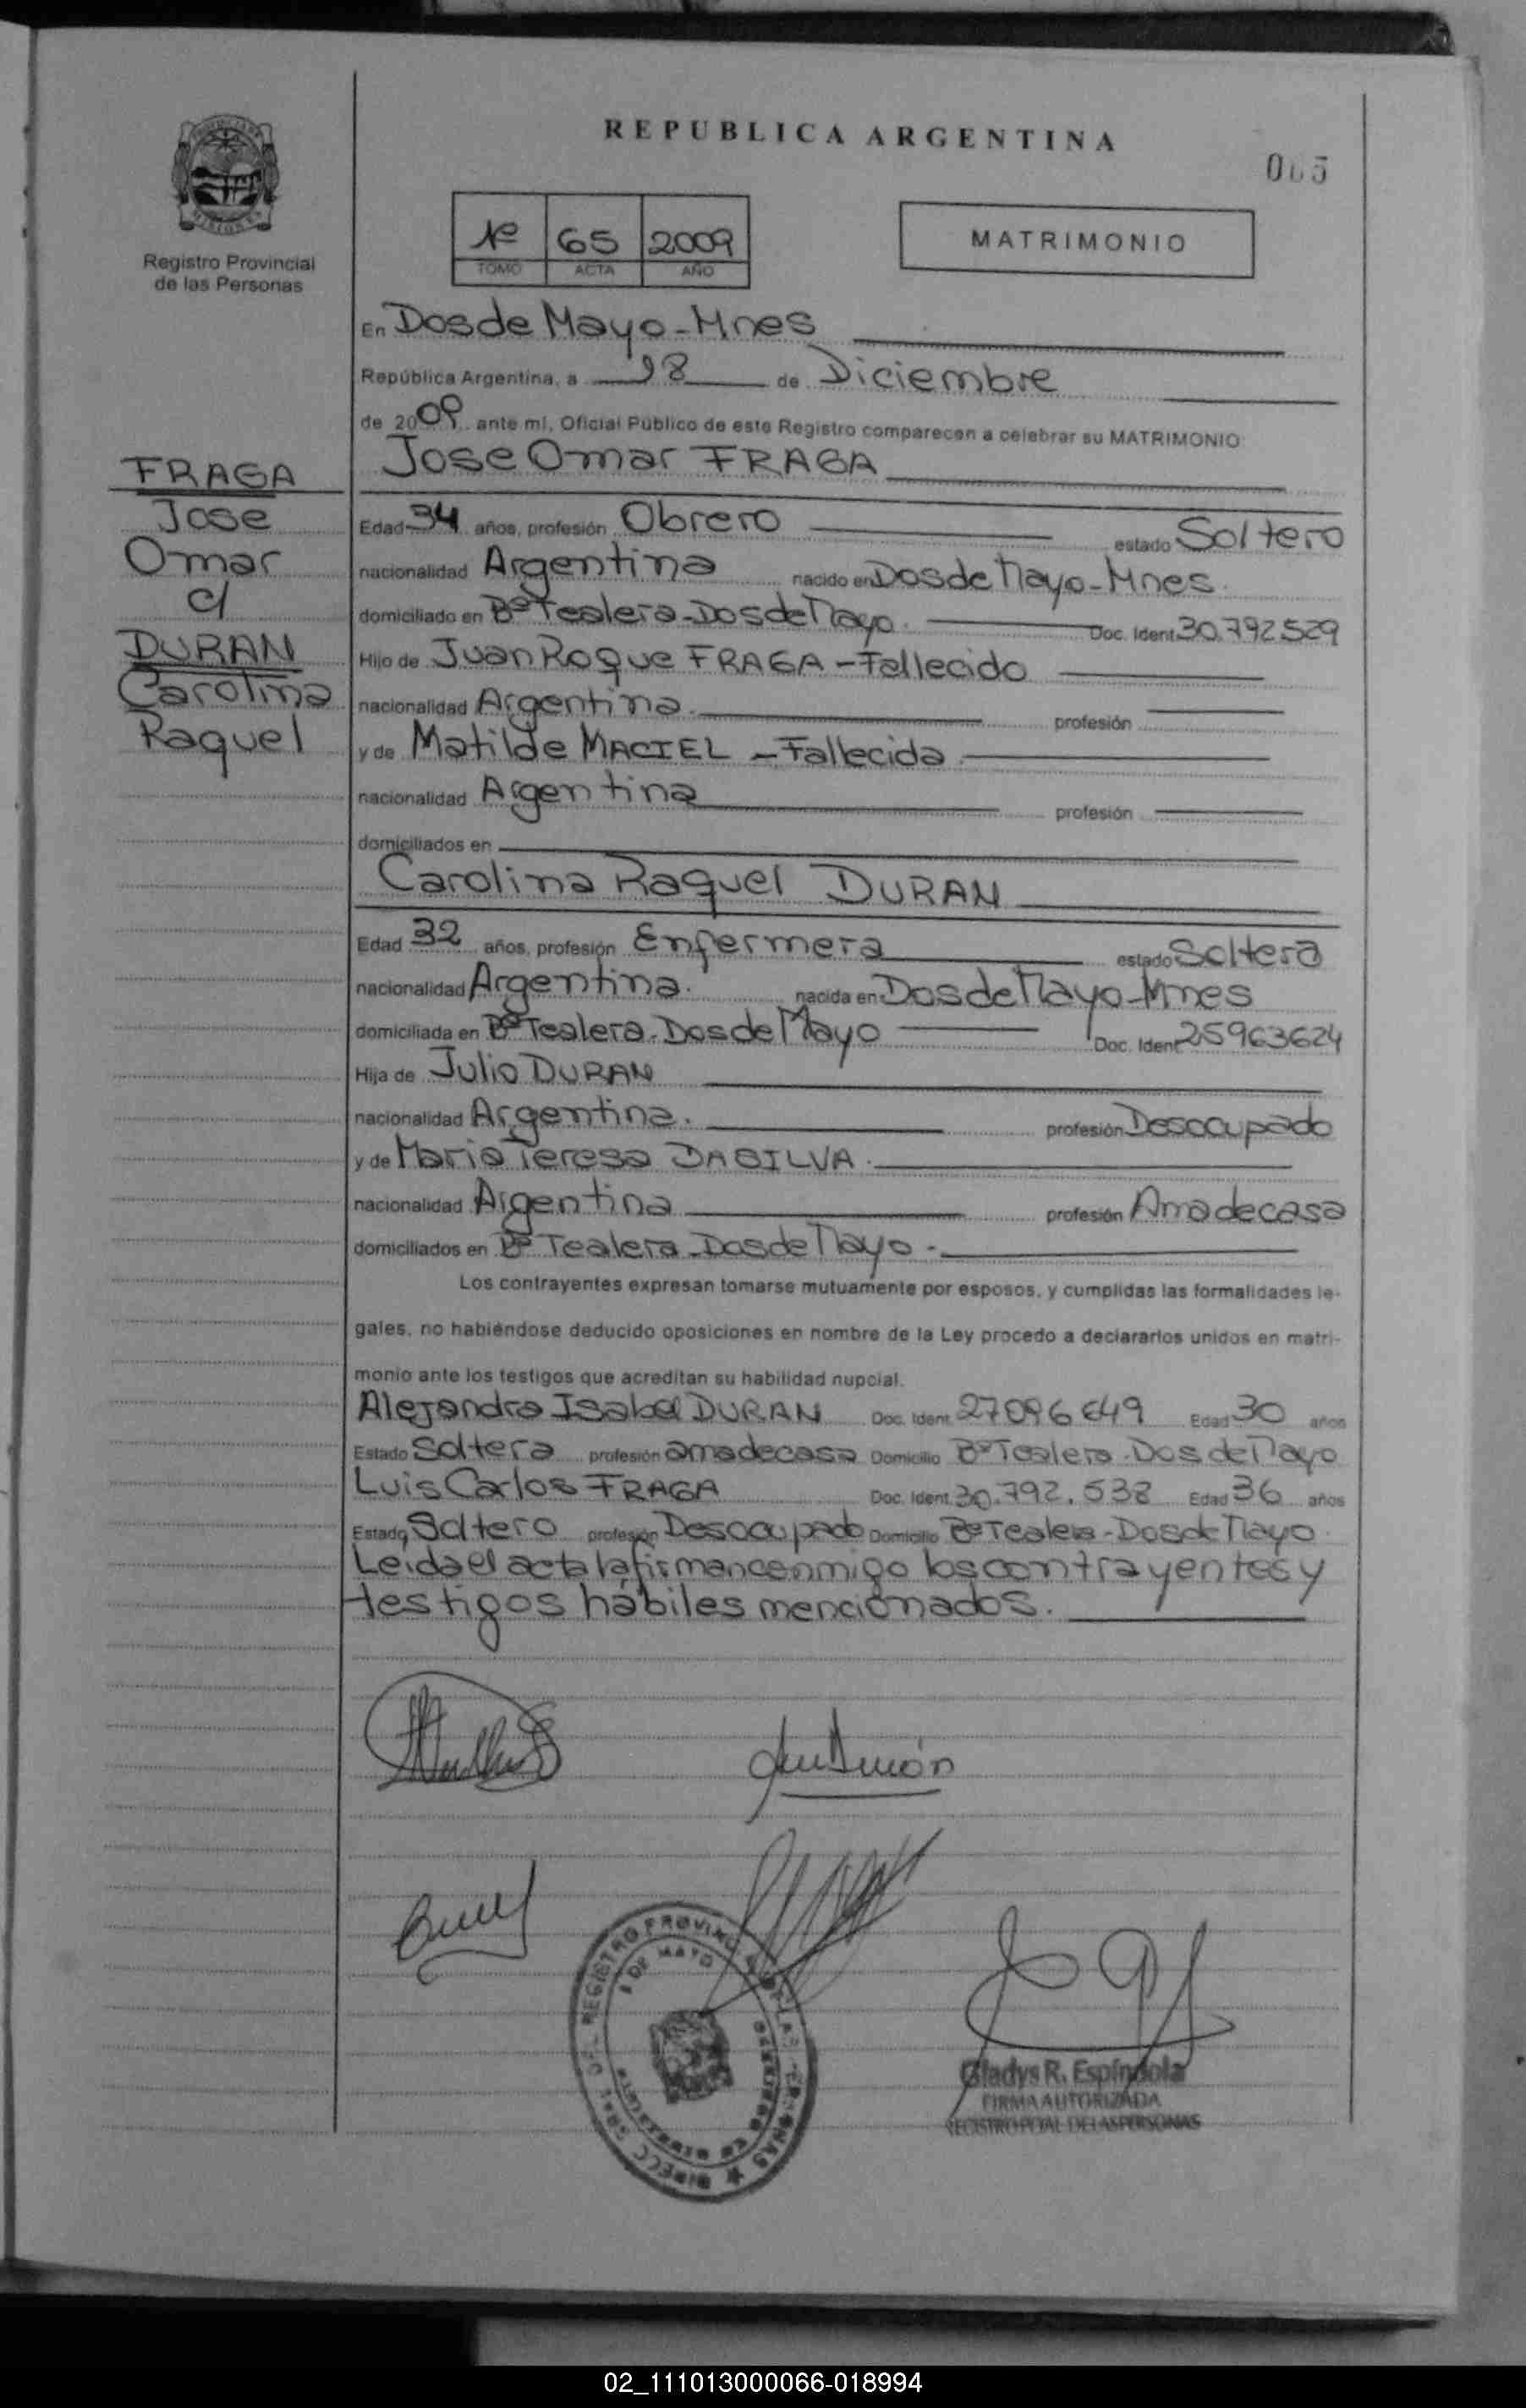 REPUBLICA ARGENTINA
065
Registro Provincial
de las Personas
Nº 65 2009
TOMO ACTA AÑO
MATRIMONIO
En Dos de Mayo-Mnes
República Argentina, a 18 de Diciembre
de 2009 ante mi, Oficial Público de este Registro comparecen a celebrar su MATRIMONIO:
Jose Omar FRAGA
FRAGA
Jose
Omar
c/
DURAN
Carolina
Raquel
Edad 34 años, profesión Obrero estado Soltero
nacionalidad Argentina nacido en Dos de Mayo-Mnes.
domiciliado en Bº Tealera-Dos de Mayo. Doc. Ident. 30.792.529
Hijo de Juan Roque FRAGA - Fallecido
nacionalidad Argentina. profesión
y de Matilde MACIEL - Fallecida
nacionalidad Argentina profesión
domiciliados en
Carolina Raquel DURAN
Edad 32 años, profesión Enfermera estado Soltera
nacionalidad Argentina. nacida en Dos de Mayo-Mnes
domiciliada en Bº Tealera-Dos de Mayo Doc. Ident. 25963624
Hija de Julio DURAN
nacionalidad Argentina. profesión Desocupado
y de Maria Teresa DASILVA.
nacionalidad Argentina profesión Ama de casa
domiciliados en Bº Tealera-Dos de Mayo-
Los contrayentes expresan tomarse mutuamente por esposos, y cumplidas las formalidades le-
gales, no habiéndose deducido oposiciones en nombre de la Ley procedo a declararlos unidos en matri-
monio ante los testigos que acreditan su habilidad nupcial.
Alejandra Isabel DURAN Doc. Ident. 27096649 Edad 30 años
Estado Soltera profesión ama de casa Domicilio Bº Tealera-Dos de Mayo
Luis Carlos FRAGA Doc. Ident. 30.792.538 Edad 36 años
Estado Soltero profesión Desocupado Domicilio Bº Tealera-Dos de Mayo
Leida el acta la firman conmigo los contrayentes y
testigos hábiles mencionados.
Gladys R. Espíndola
FIRMA AUTORIZADA
REGISTRO PCIAL DE LAS PERSONAS
02_111013000066-018994